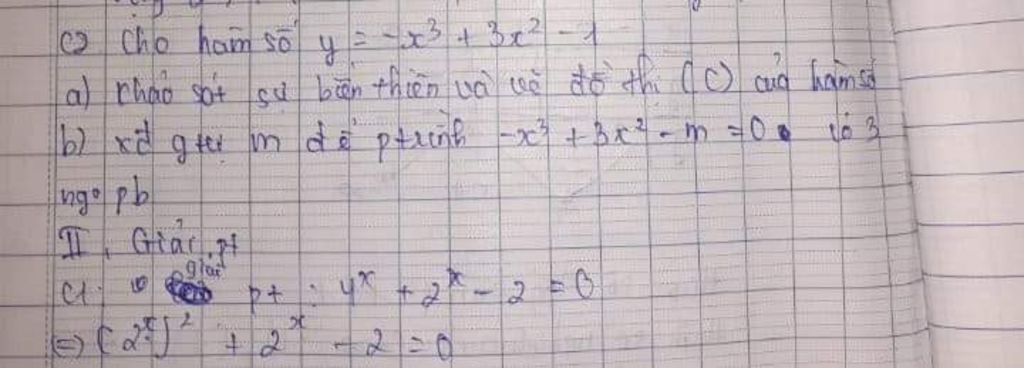 c2 Cho hàm số y = -x³ + 3x² - 1
a) khảo sát sự biến thiên và vẽ đồ thị (C) của hàm số
b) xđ gtrị m để ptrình -x³ + 3x² - m = 0 có 3
ngo pb
II, Giải pt
C1: giải pt : 4ˣ + 2ˣ - 2 = 0
⇔ (2ˣ)² + 2ˣ - 2 = 0